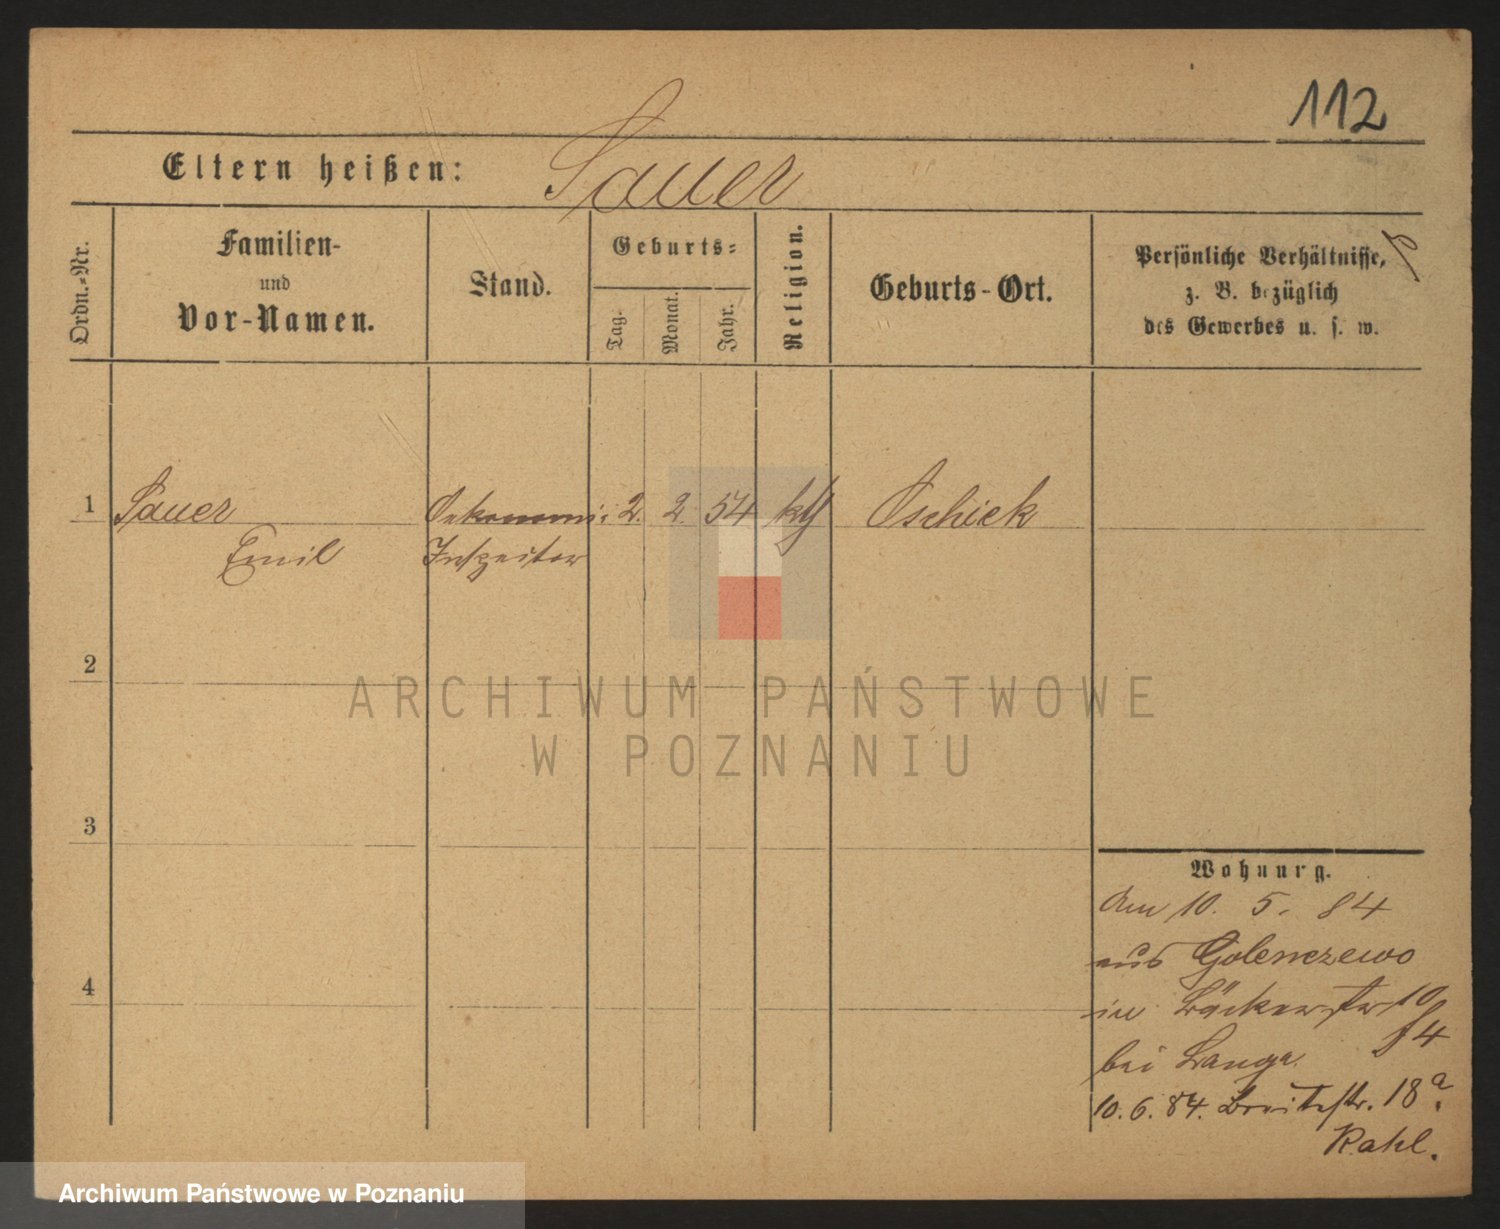 112
Eltern heißen: Sauer
Ordn.-Nr.
Familien-
und
Vor-Namen.
Stand.
Geburts-
Tag.
Monat.
Jahr.
Religion.
Geburts-Ort.
Persönliche Verhältnisse,
z. B. bezüglich
des Gewerbes u. s. w.
1 Sauer Oekonomie 2. 2. 54 kth Oschiek
Emil Inspeitor
2
ARCHIWUM PAŃSTWOWE
W POZNANIU
3
Wohnung.
Am 10. 5. 84
aus Golenczewo
4
in Bäckerstr 10
bei Lange 84
10. 6. 84. Breitestr. 18a.
Rahl.
Archiwum Państwowe w Poznaniu